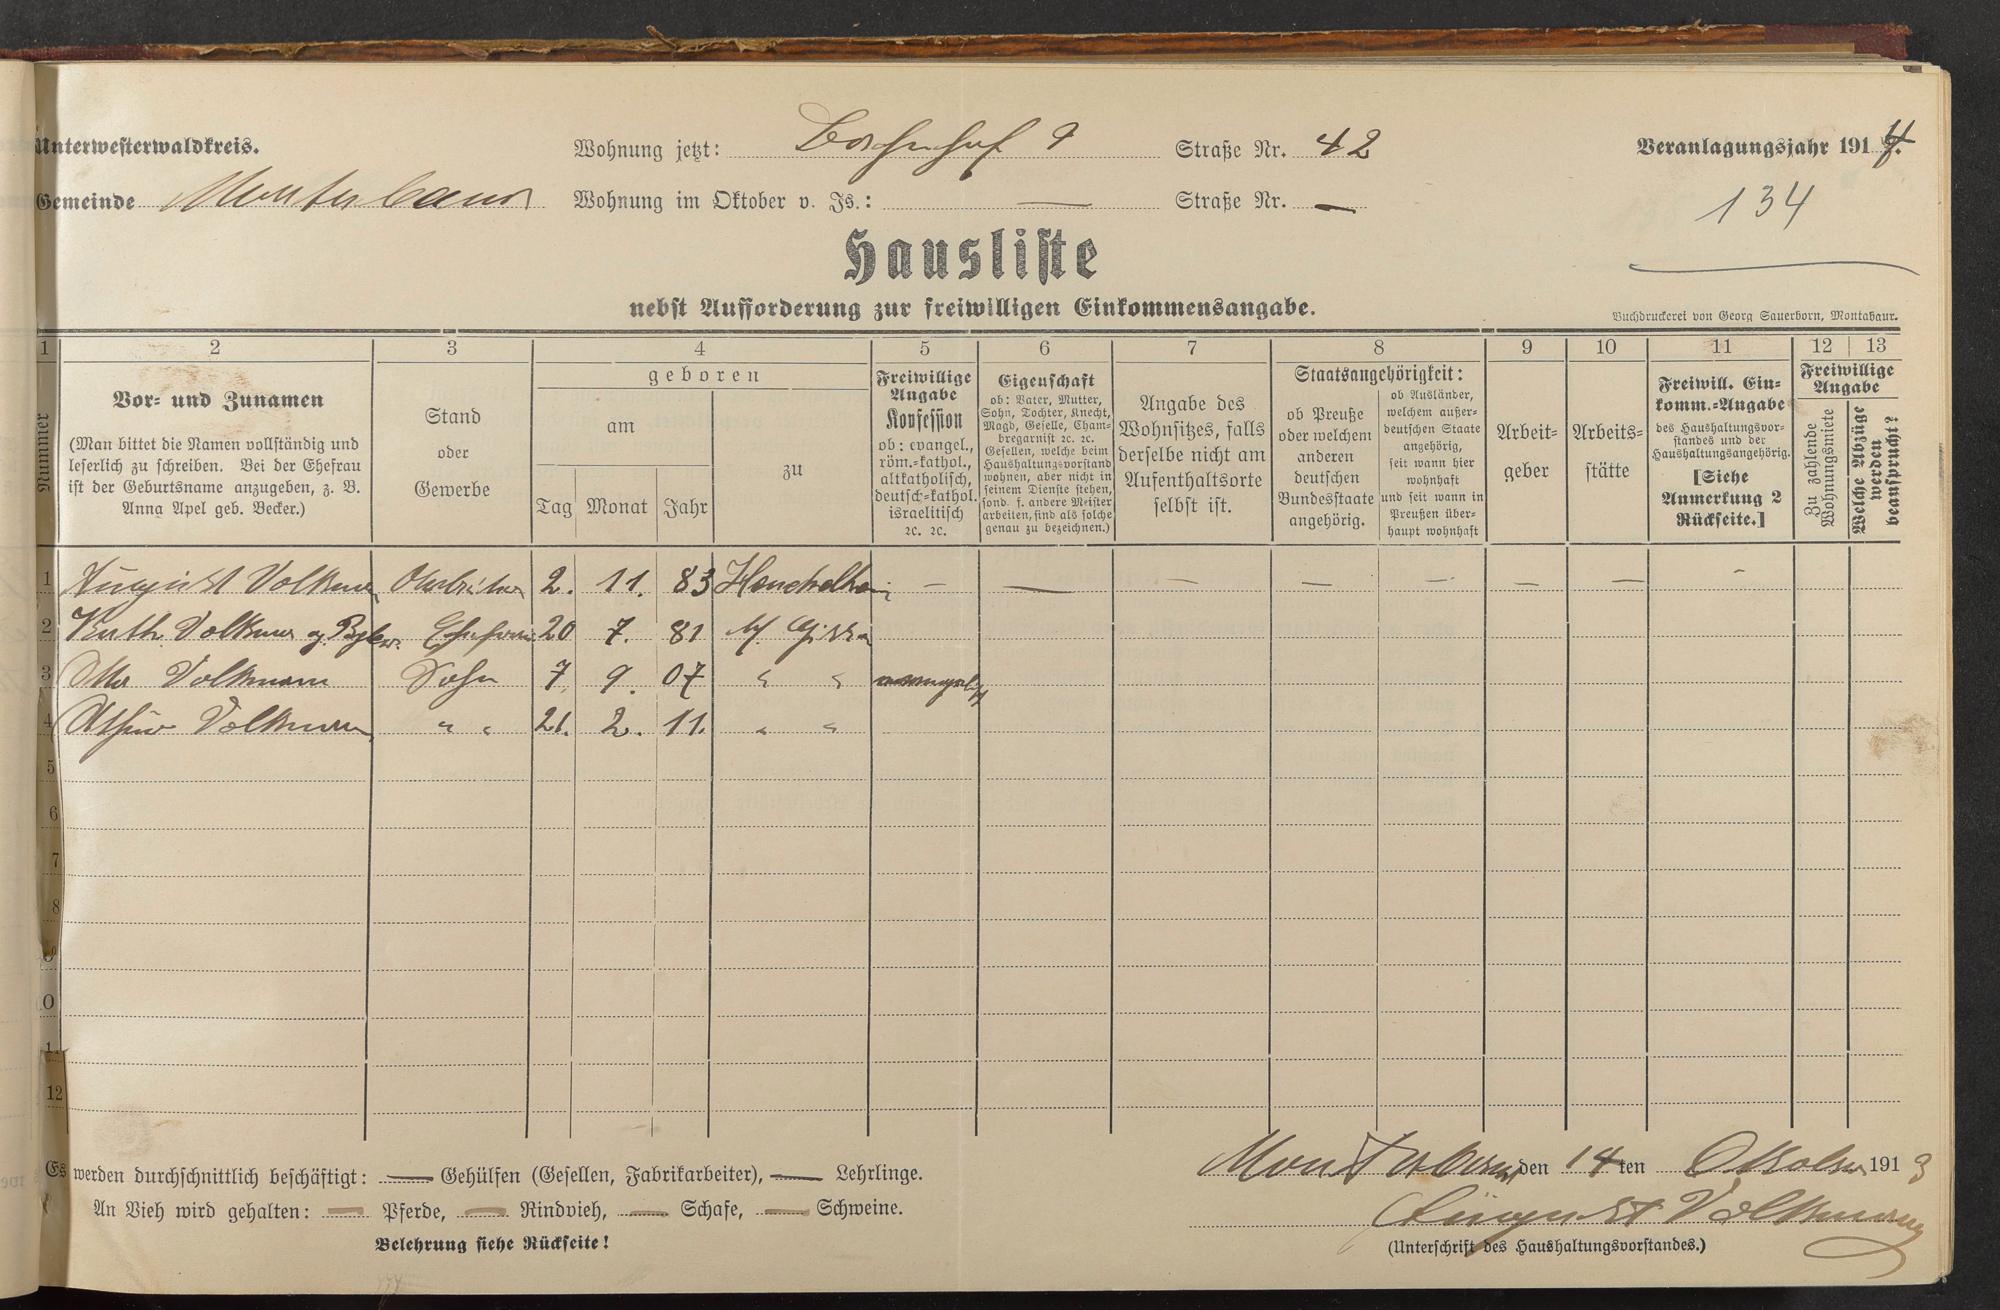 Unterwesterwaldkreis.
Wohnung jetzt: Bahnhof 9 Straße Nr. 42
Veranlagungsjahr 1914.
Gemeinde Montabaur
Wohnung im Oktober v. Js.: — Straße Nr. —
134
Hausliste
nebst Aufforderung zur freiwilligen Einkommensangabe.
Buchdruckerei von Georg Sauerborn, Montabaur.
1 2 3 4 5 6 7 8 9 10 11 12 13
Nummer
Vor- und Zunamen
(Man bittet die Namen vollständig und
leserlich zu schreiben. Bei der Ehefrau
ist der Geburtsname anzugeben, z. B.
Anna Apel geb. Becker.)
Stand
oder
Gewerbe
geboren
am
Tag Monat Jahr
zu
Freiwillige
Angabe
Konfession
ob: evangel.,
röm.-kathol.,
altkatholisch,
deutsch-kathol.
israelitisch
ꝛc. ꝛc.
Eigenschaft
ob: Vater, Mutter,
Sohn, Tochter, Knecht,
Magd, Geselle, Cham-
bregarnist ꝛc. ꝛc.
Gesellen, welche beim
Haushaltungsvorstand
wohnen, aber nicht in
seinem Dienste stehen,
sond. f. andere Meister
arbeiten, sind als solche
genau zu bezeichnen.)
Angabe des
Wohnsitzes, falls
derselbe nicht am
Aufenthaltsorte
selbst ist.
Staatsangehörigkeit:
ob Preuße
oder welchem
anderen
deutschen
Bundesstaate
angehörig.
ob Ausländer,
welchem außer-
deutschen Staate
angehörig,
seit wann hier
wohnhaft
und seit wann in
Preußen über-
haupt wohnhaft
Arbeit-
geber
Arbeits-
stätte
Freiwill. Ein-
komm.-Angabe
des Haushaltungsvor-
standes und der
Haushaltungsangehörig.
[Siehe
Anmerkung 2
Rückseite.]
Freiwillige
Angabe
Zu zahlende
Wohnungsmiete
Welche Abzüge
werden
beansprucht?
1 August Volkmann 2. 11. 83 — — — — — — — -
2 Kath. Volkmann g. Ehefrau 20 7. 81
3 Otto Volkmann Sohn 7. 9. 07 " " evangelisch
4 Arthur Volkmann " " 21. 2. 11. " "
5
6
7
8
9
10
11
12
Es werden durchschnittlich beschäftigt: — Gehülfen (Gesellen, Fabrikarbeiter), — Lehrlinge.
Montabaur den 14ten Oktober 1913
An Vieh wird gehalten: — Pferde, — Rindvieh, — Schafe, — Schweine.
August Volkmann
Belehrung siehe Rückseite!
(Unterschrift des Haushaltungsvorstandes.)